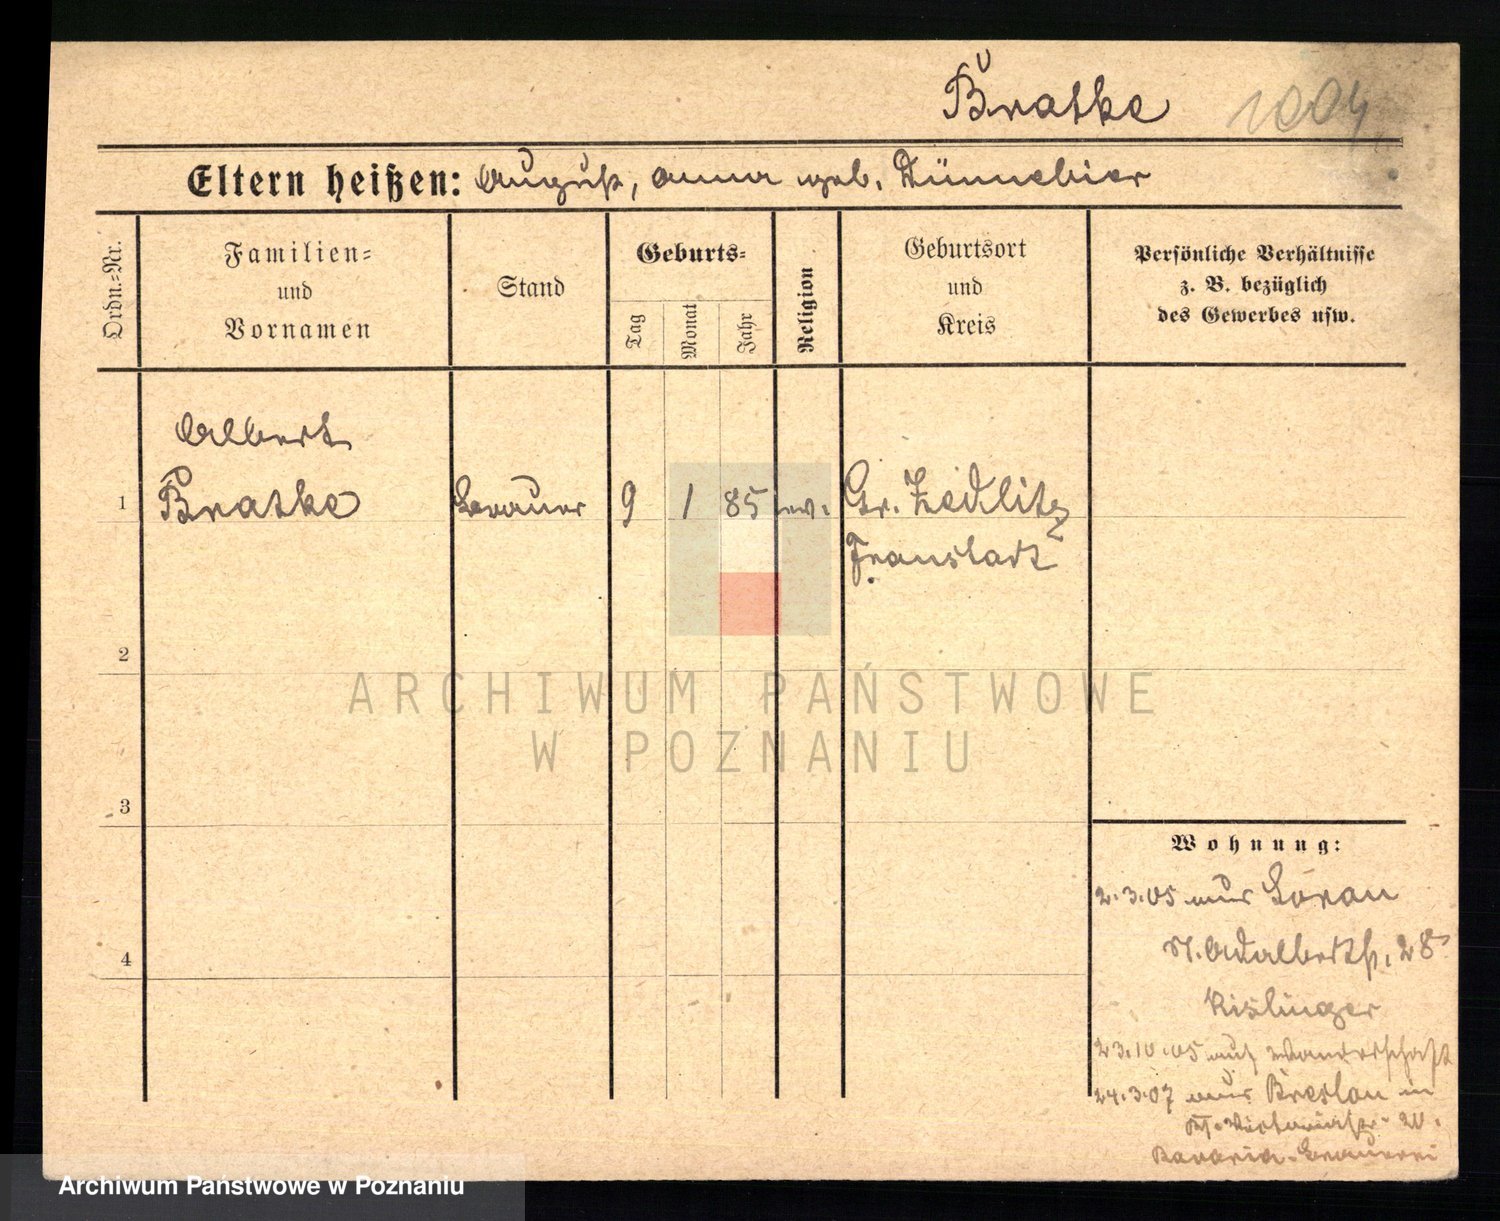 Bratke 1004
Eltern heißen: August, Anna geb. Dünnebier
Ordn.-Nr.
Familien-
und
Vornamen
Stand
Geburts-
Tag
Monat
Jahr
Religion
Geburtsort
und
Kreis
Persönliche Verhältnisse
z. B. bezüglich
des Gewerbes usw.
Albert
1 Bratke Brauer 9 1 85 ev. Gr. Zedlitz
Fraustadt
2
3
4
ARCHIWUM PAŃSTWOWE
W POZNANIU
Wohnung:
2.3.05 aus Sorau
St. Adalbertstr. 28
Kislinger
23.10.05 auf Wanderschaft
24.3.07 aus Breslau in
20.
Bavaria-Brauerei
Archiwum Państwowe w Poznaniu